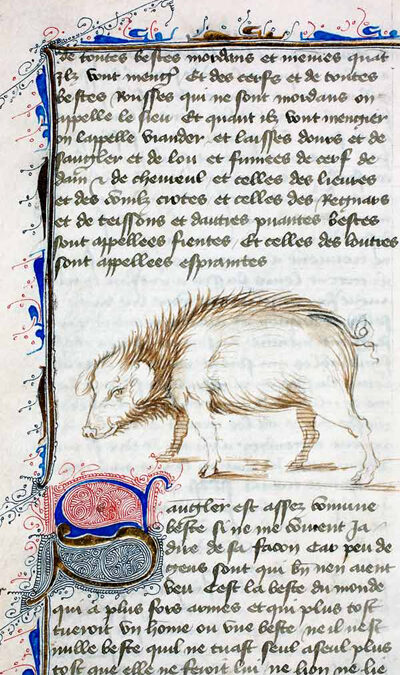 de toutes bestes mordans et memes quāt
ilz vont mengˀ Et des cerfs et de toutes
bestes Rousses qui ne sont mordans on
appelle le lieu Et quant ilz vont mengier
on lappelle viander et laisses dours et de
sangler et de lou et fumees de cerf de
dain & de chevreul et celles des lievres
et des conilz crotes et celles des Regnars
et de teissons et dautres puantes bestes
sont appellees fientes Et celles des loutres
sont appellees espraintes
Sangler est assez commune
beste si ne me convient Ja
dire de sa facon Car peu de
gens sont qui biē nen aient
veu Cest la beste du monde
qui a plus fors armes et qui plus tost
tueroit vn home ou vne beste ne il nest
nulle beste quil ne tuast seul a seul plus
tost que elle ne feroit lui ne lion ne lie